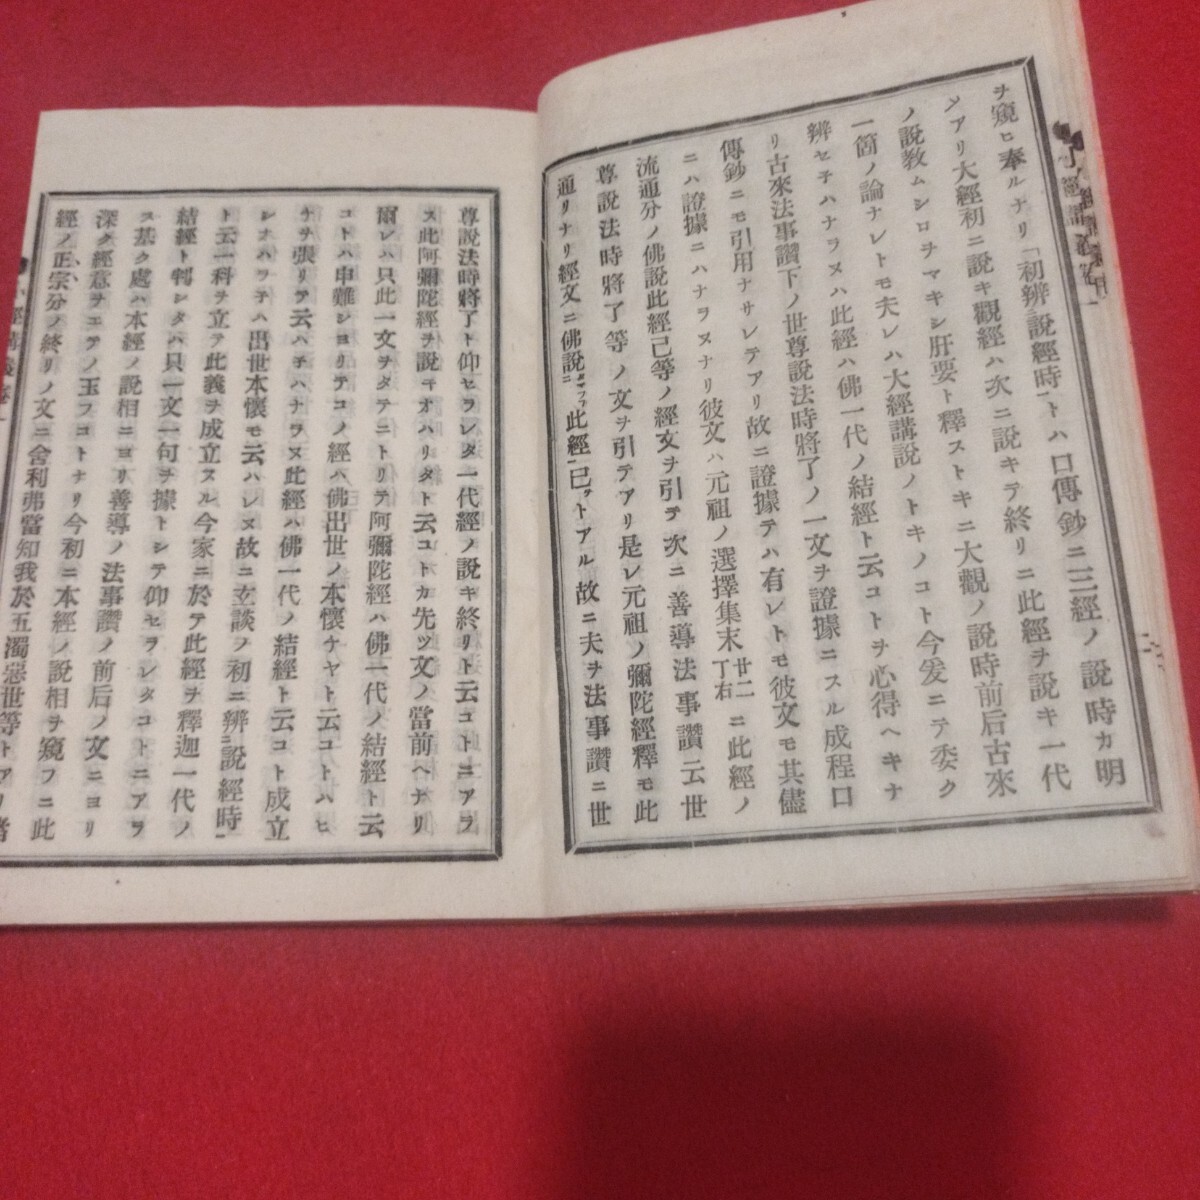 ヲ窺ヒ奉ルナリ「初辨説經時」トハ口傳鈔ニ三經ノ説時カ明
メアリ大經初ニ説キ觀經ハ次ニ説キテ終リニ此經ヲ説キ一代
ノ説教ムシロヲマキシ肝要ト釋ストキニ大觀ノ説時前后古來
一箇ノ論ナレトモ夫レハ大經講説ノトキノコト今爰ニテ委ク
辨セテハナラヌハ此經ハ佛一代ノ結經ト云コトヲ心得ヘキナ
リ古來法事讃下ノ世尊説法時將了ノ一文ヲ證據ニスル成程口
傳鈔ニモ引用ナサレテアリ故ニ證據テハ有レトモ彼文モ其儘
ニハ證據ニハナラヌナリ彼文ハ元祖ノ選擇集末廿二丁右ニ此經ノ
流通分ノ佛説此經已等ノ經文ヲ引テ次ニ善導法事讃云世
尊説法時將了等ノ文ヲ引テアリ是レ元祖ノ彌陀經釋モ此
通リナリ經文ニ佛説二此經一已トアル故ニ夫ヲ法事讃ニ世
尊説法時將了ト仰セラレタ一代經ノ説キ終リト云コトニアラ
ス此阿彌陀經ヲ説キオハリタト云コトカ先ツ文ノ當前ヘナリ
爾レハ只此一文ヲタテニトリテ阿彌陀經ハ佛一代ノ結經ト云
コトハ申難シヨリテコノ經ハ佛出世ノ本懷ケヤト云コトハヒ
チヲ張リテ云ハチハナラヌ此經ハ佛一代ノ結經ト云コト成立
シオハラチハ出世本懷モ云ハレヌ故ニ玄談ノ初ニ辨二説經時一
ト云一科ヲ立テ此義ヲ成立ヌル今家ニ於テ此經ヲ釋迦一代ノ
結經ト判シタハ只一文一句ヲ據トシテ仰セラレタコトニアラ
ス基ク處ハ本經ノ説相ニヨリ善導ノ法事讃ノ前后ノ文ニヨリ
深ク經意ヲエテノ玉フコトナリ今初ニ本經ノ説相ヲ窺フニ此
經ノ正宗分ノ終リノ文ニ舍利弗當知我於五濁惡世等トアリ